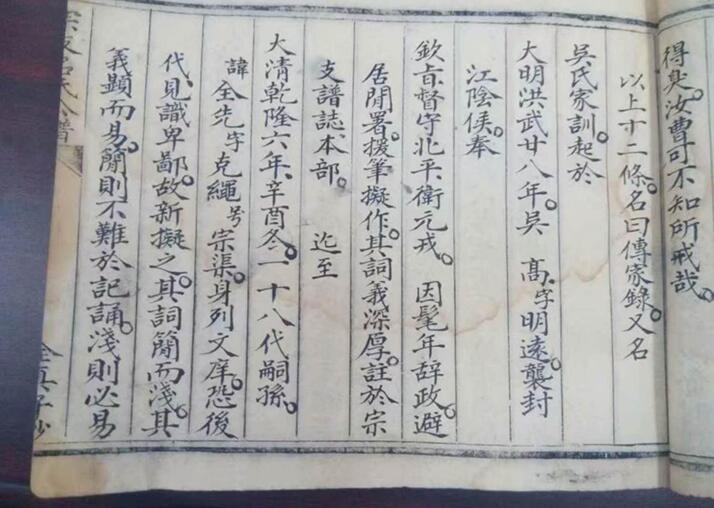 得臭。汝曹可不知所戒哉。
以上十二條。名曰傳家錄。又名
吳氏家訓。起於
大明洪武廿八年。吳 髙。字明遠。襲封
江陰侯。奉
欽㫖督守北平。衛元戎。 因髦年辞政。避
居閒署。援筆擬作。其詞義深厚。註於宗
支譜誌本部。 迄至
大清乾隆六年、辛酉冬。一十八代嗣孫。
諱全先字克繩号宗渠。身列文庠。恐後
代見識卑鄙。故新擬之。其詞簡而淺。其
義顯而易。簡則不難於記誦。淺則必易